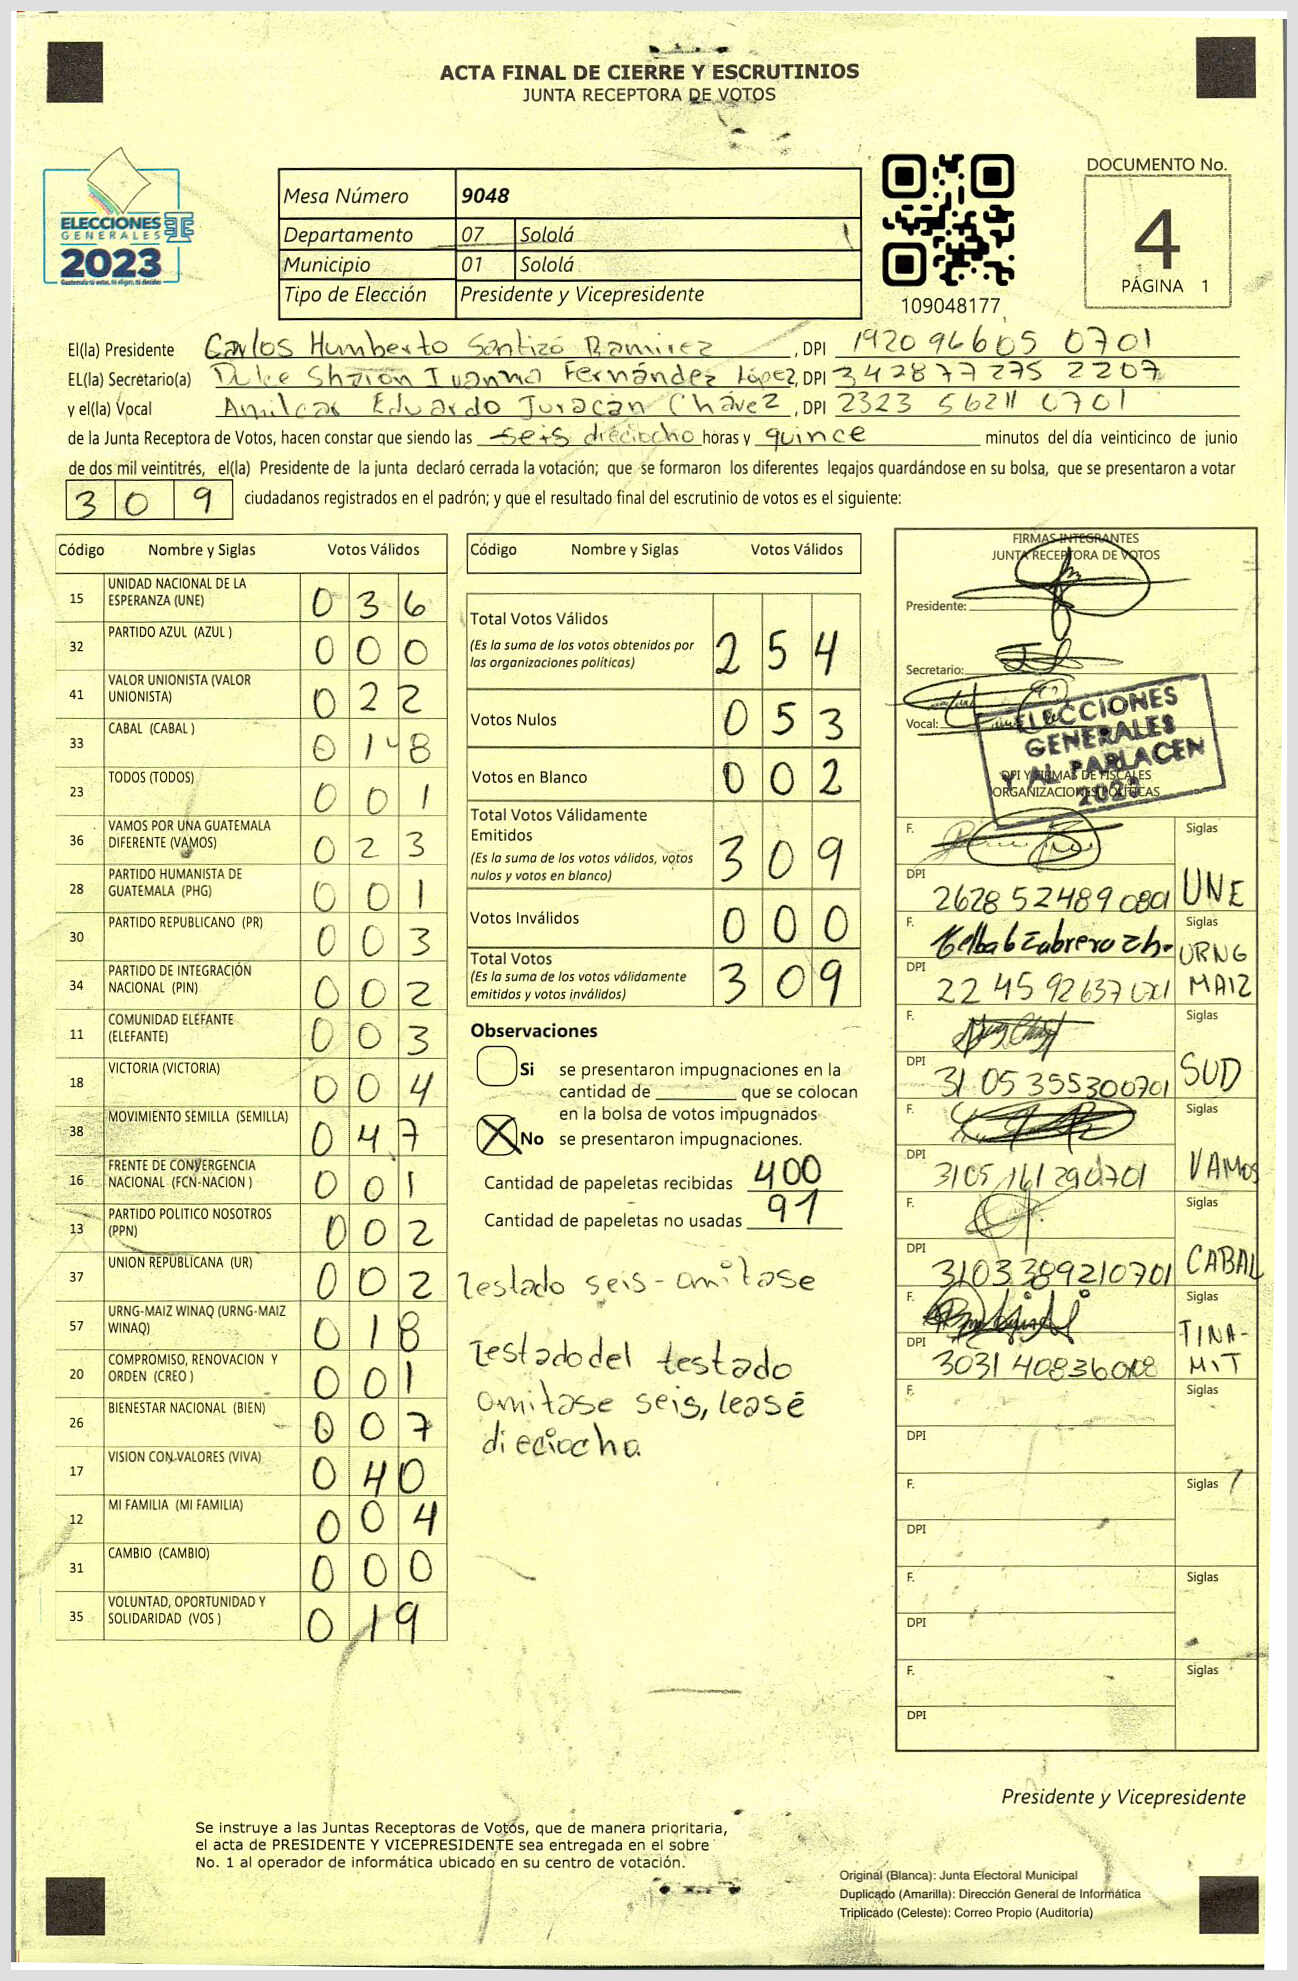 ACTA FINAL DE CIERRE Y ESCRUTINIOS
JUNTA RECEPTORA DE VOTOS
ELECCIONES
GENERALES
2023
Mesa Número 9048
Departamento 07 Sololá
Municipio 01 Sololá
Tipo de Elección Presidente y Vicepresidente
109048177
DOCUMENTO No.
4
PÁGINA 1
El(la) Presidente Carlos Humberto Santizó Ramirez, DPI 1920 96605 0701
EL(la) Secretario(a) Dulce Sharon Ivanna Fernández López, DPI 342877275 2207
y el(la) Vocal Amilcar Eduardo Juracán Chávez, DPI 2323 56211 0701
de la Junta Receptora de Votos, hacen constar que siendo las seis dieciocho horas y quince minutos del día veinticinco de junio
de dos mil veintitrés, el(la) Presidente de la junta declaró cerrada la votación; que se formaron los diferentes legajos guardándose en su bolsa, que se presentaron a votar
309 ciudadanos registrados en el padrón; y que el resultado final del escrutinio de votos es el siguiente:
Código Nombre y Siglas Votos Válidos
15 UNIDAD NACIONAL DE LA ESPERANZA (UNE) 036
32 PARTIDO AZUL (AZUL ) 000
41 VALOR UNIONISTA (VALOR UNIONISTA) 022
33 CABAL (CABAL ) 018
23 TODOS (TODOS) 001
36 VAMOS POR UNA GUATEMALA DIFERENTE (VAMOS) 023
28 PARTIDO HUMANISTA DE GUATEMALA (PHG) 001
30 PARTIDO REPUBLICANO (PR) 003
34 PARTIDO DE INTEGRACIÓN NACIONAL (PIN) 002
11 COMUNIDAD ELEFANTE (ELEFANTE) 003
18 VICTORIA (VICTORIA) 004
38 MOVIMIENTO SEMILLA (SEMILLA) 047
16 FRENTE DE CONVERGENCIA NACIONAL (FCN-NACION ) 001
13 PARTIDO POLITICO NOSOTROS (PPN) 002
37 UNION REPUBLICANA (UR) 002
57 URNG-MAIZ WINAQ (URNG-MAIZ WINAQ) 018
20 COMPROMISO, RENOVACION Y ORDEN (CREO ) 001
26 BIENESTAR NACIONAL (BIEN) 007
17 VISION CON VALORES (VIVA) 040
12 MI FAMILIA (MI FAMILIA) 004
31 CAMBIO (CAMBIO) 000
35 VOLUNTAD, OPORTUNIDAD Y SOLIDARIDAD (VOS ) 019
Código Nombre y Siglas Votos Válidos
Total Votos Válidos 254
(Es la suma de los votos obtenidos por
las organizaciones políticas)
Votos Nulos 053
Votos en Blanco 002
Total Votos Válidamente
Emitidos 309
(Es la suma de los votos válidos, votos
nulos y votos en blanco)
Votos Inválidos 000
Total Votos 309
(Es la suma de los votos válidamente
emitidos y votos inválidos)
Observaciones
Si se presentaron impugnaciones en la
cantidad de ________ que se colocan
en la bolsa de votos impugnados
X No se presentaron impugnaciones.
Cantidad de papeletas recibidas 400
Cantidad de papeletas no usadas 91
Testado seis - omitase
Testado del testado
omitase seis, leasé
dieciocho
FIRMAS INTEGRANTES
JUNTA RECEPTORA DE VOTOS
Presidente:
Secretario:
Vocal:
ELECCIONES
GENERALES
Y AL PARLACEN
2023
DPI Y FIRMAS DE FISCALES
ORGANIZACIONES POLÍTICAS
F. Siglas
DPI 2628 52489 0801 UNE
F. Siglas
DPI 22 45 92637 0701 URNG MAIZ
F. Siglas
DPI 31 05 355300701 SUD
F. Siglas
DPI 3105 161290701 VAMOS
F. Siglas
DPI 3103389210701 CABAL
F. Siglas
DPI TINA-MIT
F. Siglas
DPI
F. Siglas
DPI
F. Siglas
DPI
F. Siglas
DPI
Presidente y Vicepresidente
Se instruye a las Juntas Receptoras de Votos, que de manera prioritaria,
el acta de PRESIDENTE Y VICEPRESIDENTE sea entregada en el sobre
No. 1 al operador de informática ubicado en su centro de votación.
Original (Blanca): Junta Electoral Municipal
Duplicado (Amarilla): Dirección General de Informática
Triplicado (Celeste): Correo Propio (Auditoría)